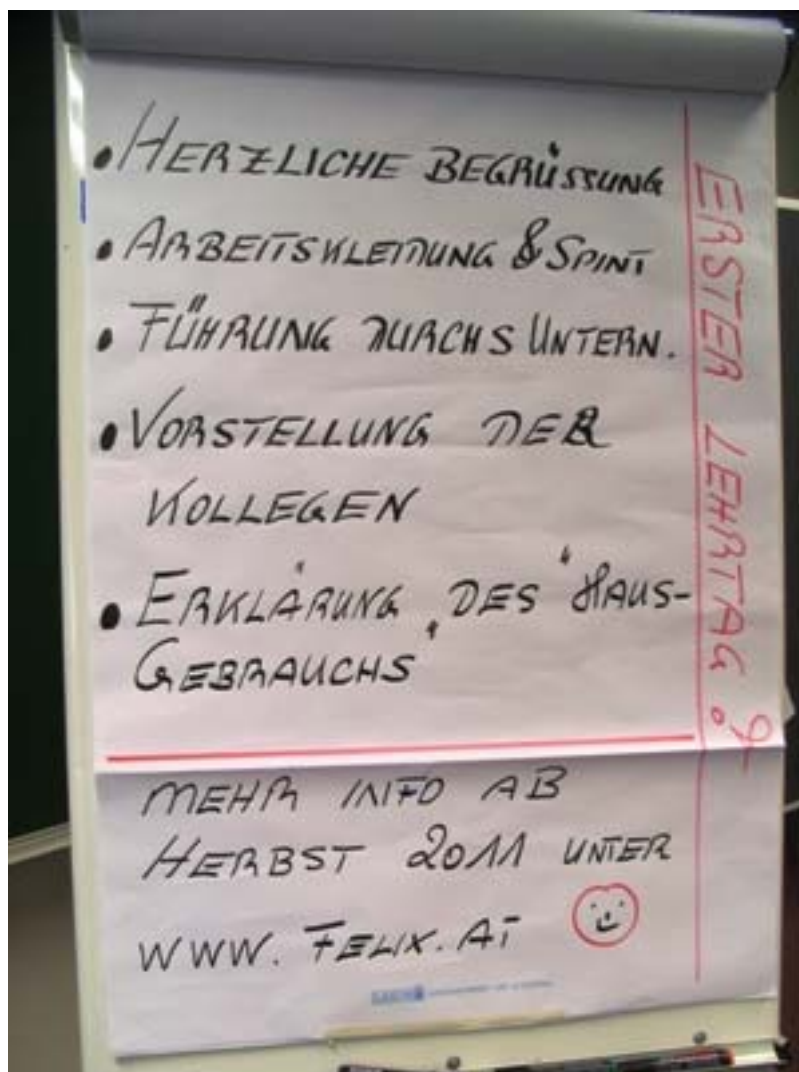 • HERZLICHE BEGRÜSSUNG
• ARBEITSKLEIDUNG & SPINT
• FÜHRUNG DURCHS UNTERN.
• VORSTELLUNG DER
KOLLEGEN
• ERKLÄRUNG DES "HAUS-
GEBRAUCHS"
ERSTER LEHRTAG ?
MEHR INFO AB
HERBST 2011 UNTER
WWW.FELIX.AT